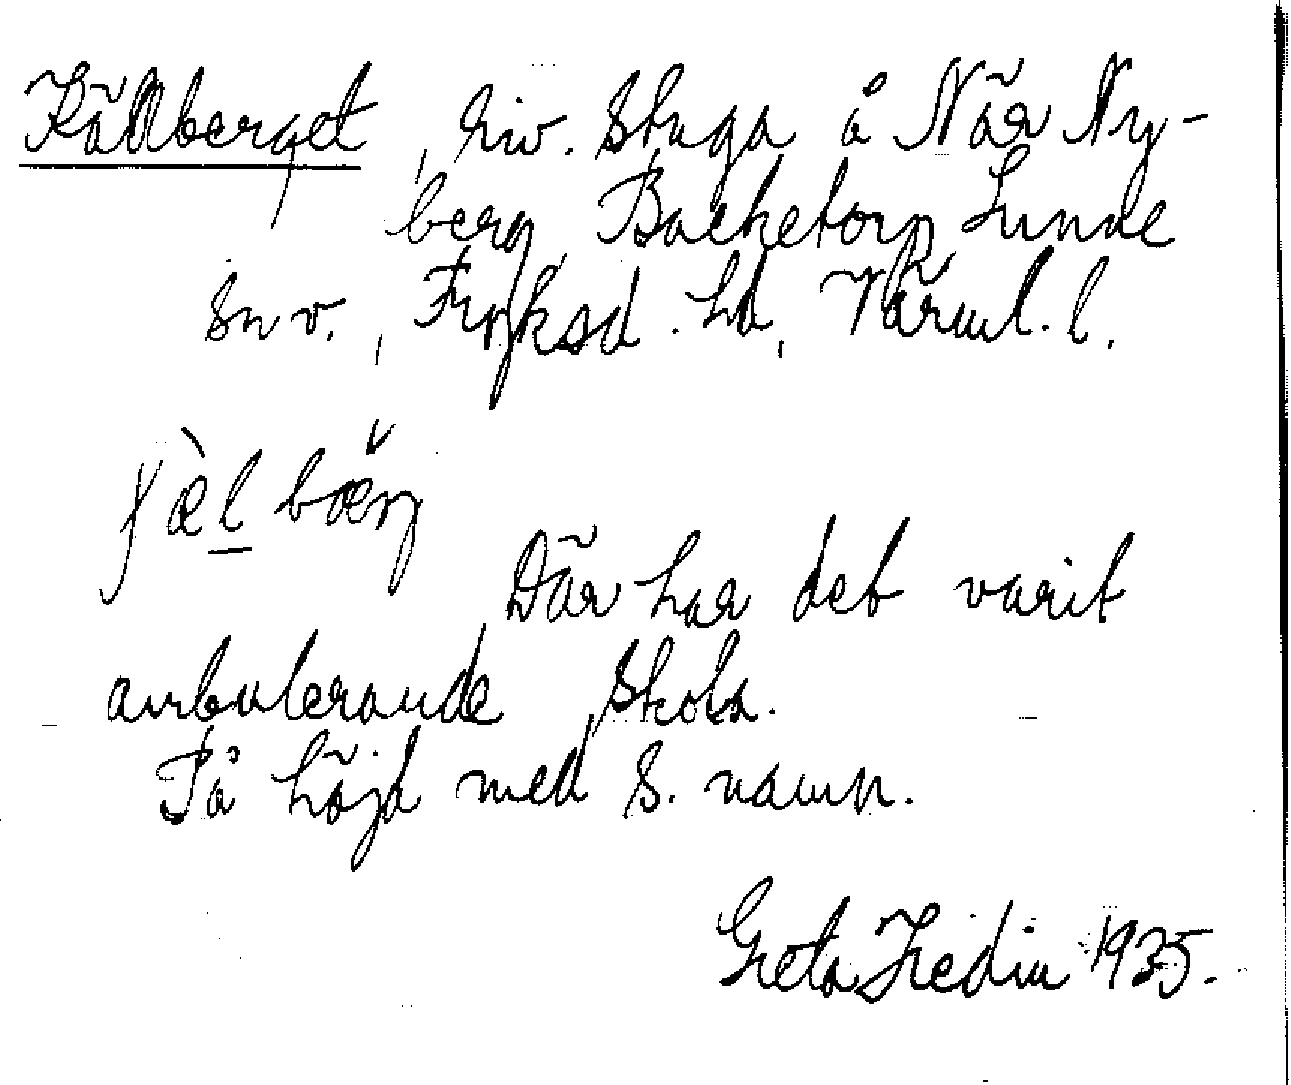 Källberget, riv. stuga å När Ny-
berg, Backetorp, Sunne
sn v., Fryksd. hd, Värml. l.
Där har det varit
ambulerande skola.
På höjd med s. namn.
Greta Hedin 1935.